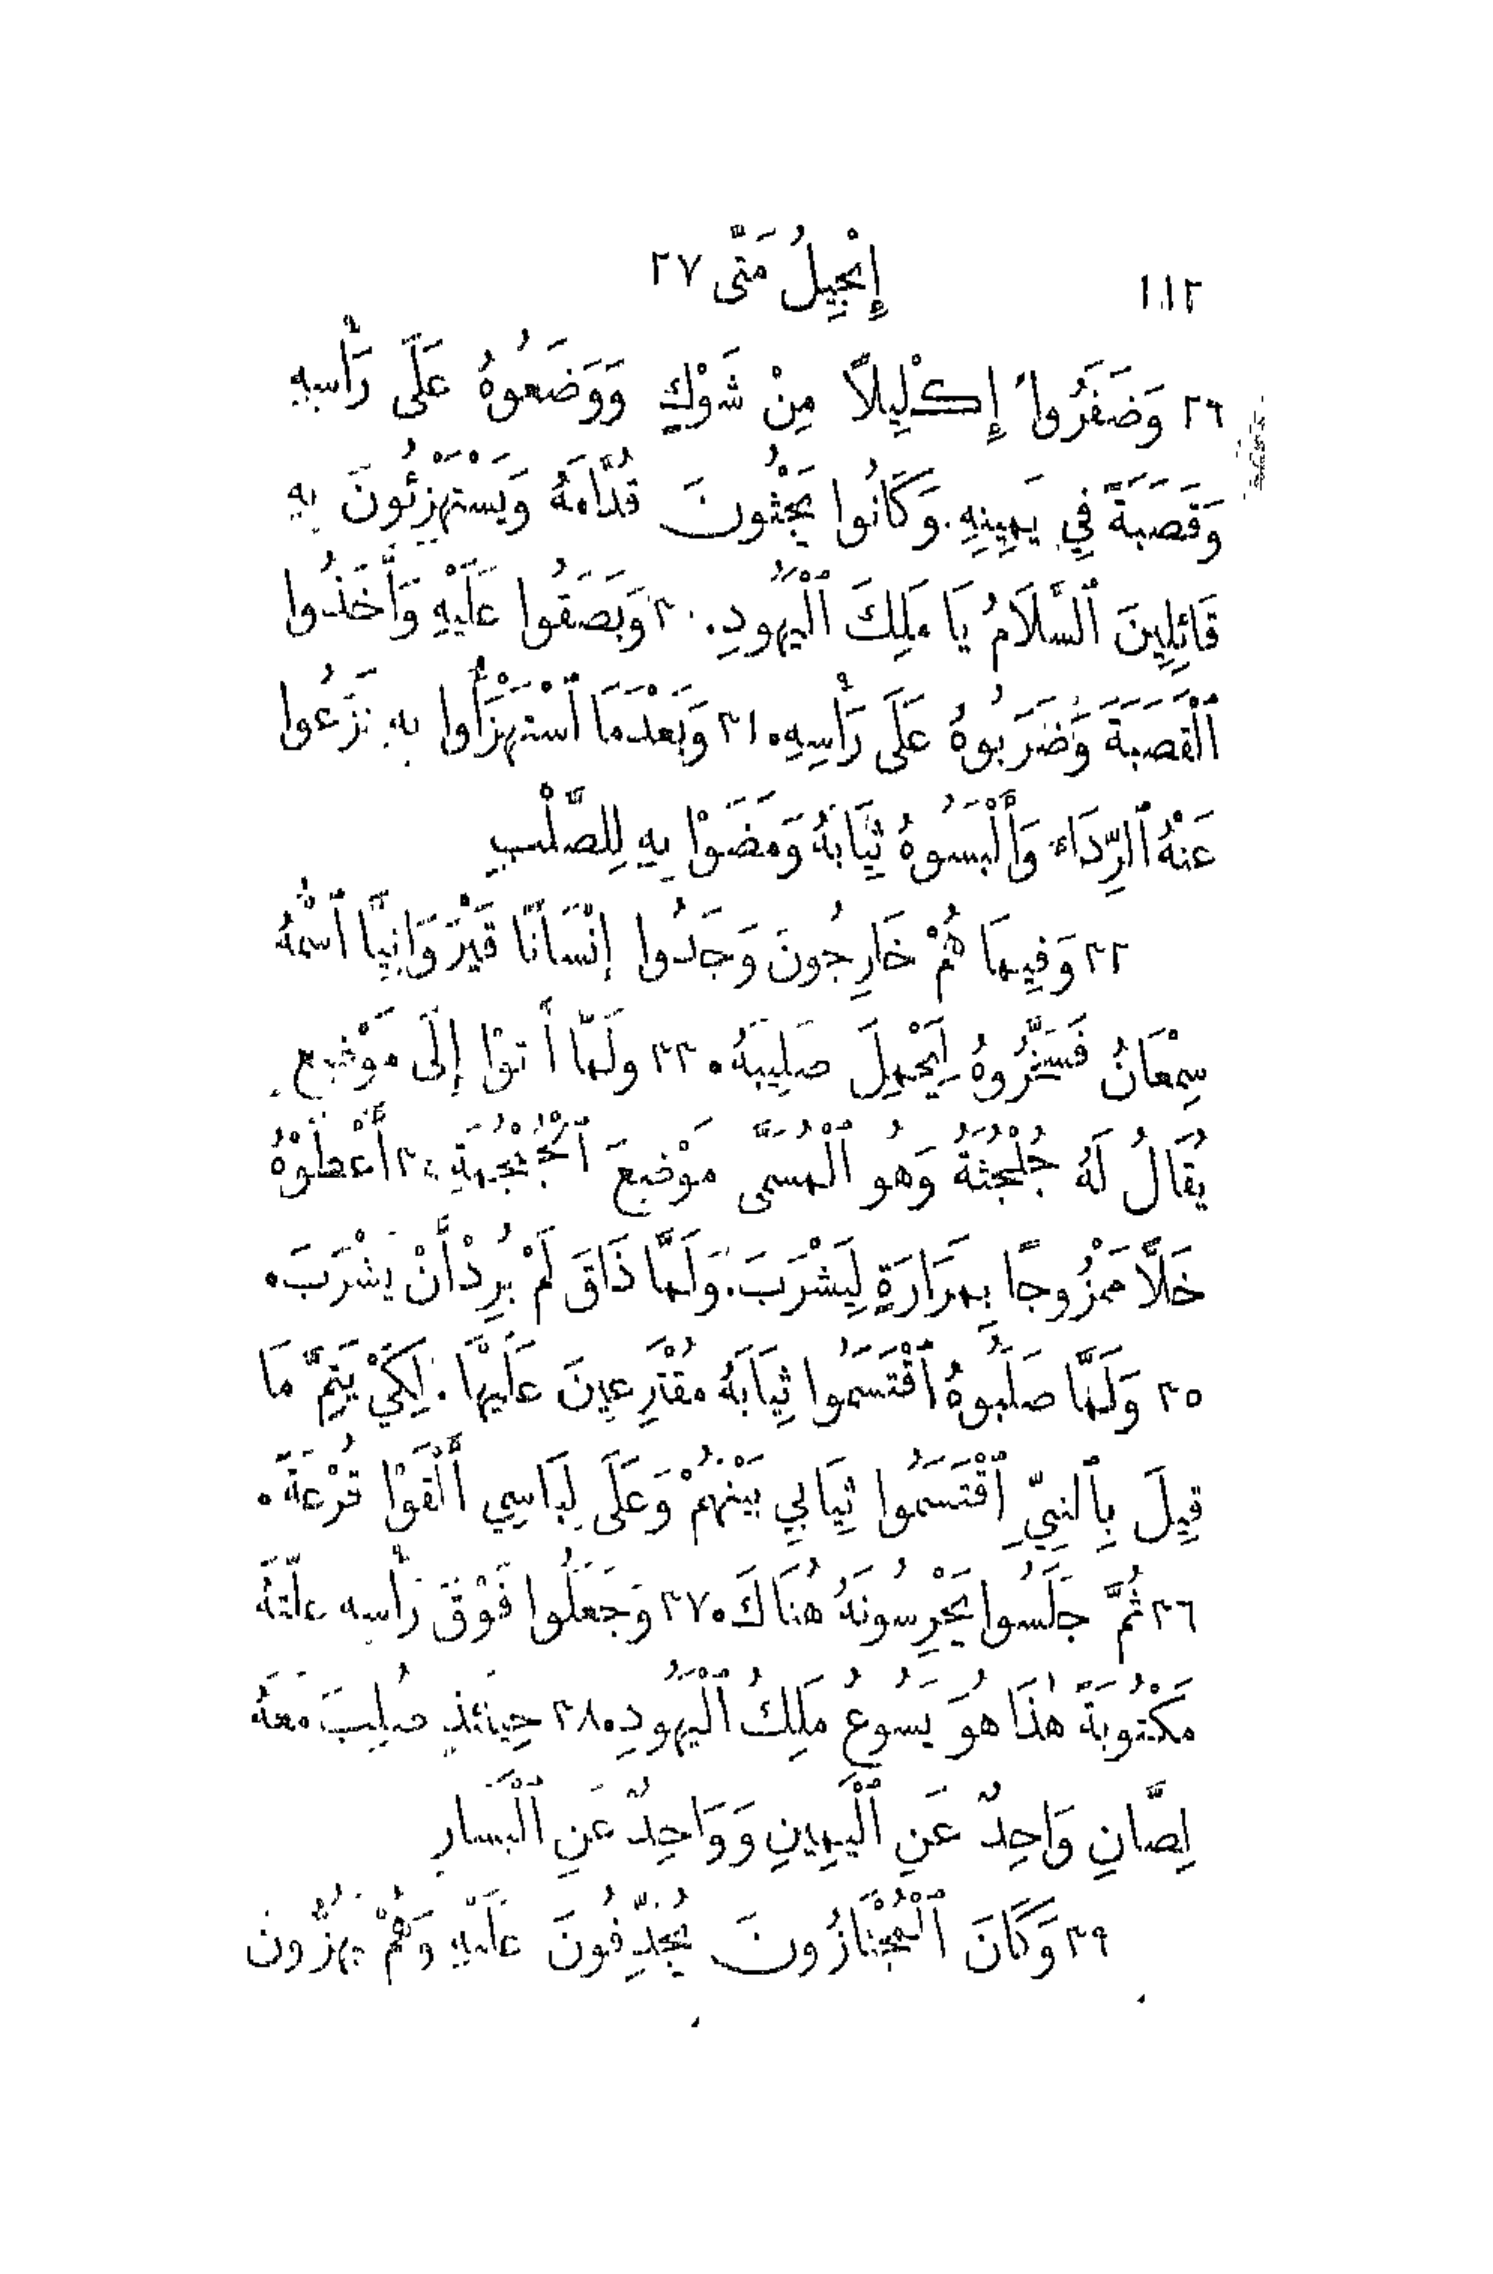 ١١٢ إِنْجِيلُ مَتَّى ٢٧
٢٦ وَضَفَرُوا إِكْلِيلًا مِنْ شَوْكٍ وَوَضَعُوهُ عَلَى رَأْسِهِ
وَقَصَبَةً فِي يَمِينِهِ. وَكَانُوا يَجْثُونَ قُدَّامَهُ وَيَسْتَهْزِئُونَ بِهِ
قَائِلِينَ ٱلسَّلَامُ يَا مَلِكَ ٱلْيَهُودِ. ٣٠ وَبَصَقُوا عَلَيْهِ وَأَخَذُوا
ٱلْقَصَبَةَ وَضَرَبُوهُ عَلَى رَأْسِهِ. ٣١ وَبَعْدَمَا ٱسْتَهْزَأُوا بِهِ نَزَعُوا
عَنْهُ ٱلرِّدَاءَ وَأَلْبَسُوهُ ثِيَابَهُ وَمَضَوْا بِهِ لِلصَّلْبِ
٣٢ وَفِيمَا هُمْ خَارِجُونَ وَجَدُوا إِنْسَانًا قَيْرَوَانِيًّا ٱسْمُهُ
سِمْعَانُ فَسَخَّرُوهُ لِيَحْمِلَ صَلِيبَهُ. ٣٣ وَلَمَّا أَتَوْا إِلَى مَوْضِعٍ
يُقَالُ لَهُ جُلْجُثَةُ وَهُوَ ٱلْمُسَمَّى مَوْضِعَ ٱلْجُمْجُمَةِ ٣٤ أَعْطَوْهُ
خَلًّا مَمْزُوجًا بِمَرَارَةٍ لِيَشْرَبَ. وَلَمَّا ذَاقَ لَمْ يُرِدْ أَنْ يَشْرَبَ.
٣٥ وَلَمَّا صَلَبُوهُ ٱقْتَسَمُوا ثِيَابَهُ مُقْتَرِعِينَ عَلَيْهَا. لِكَيْ يَتِمَّ مَا
قِيلَ بِٱلنَّبِيِّ ٱقْتَسَمُوا ثِيَابِي بَيْنَهُمْ وَعَلَى لِبَاسِي أَلْقَوْا قُرْعَةً.
٣٦ ثُمَّ جَلَسُوا يَحْرِسُونَهُ هُنَاكَ. ٣٧ وَجَعَلُوا فَوْقَ رَأْسِهِ عِلَّتَهُ
مَكْتُوبَةً هٰذَا هُوَ يَسُوعُ مَلِكُ ٱلْيَهُودِ. ٣٨ حِينَئِذٍ صُلِبَ مَعَهُ
لِصَّانِ وَاحِدٌ عَنِ ٱلْيَمِينِ وَوَاحِدٌ عَنِ ٱلْيَسَارِ
٣٩ وَكَانَ ٱلْمُجْتَازُونَ يُجَدِّفُونَ عَلَيْهِ وَهُمْ يَهُزُّونَ